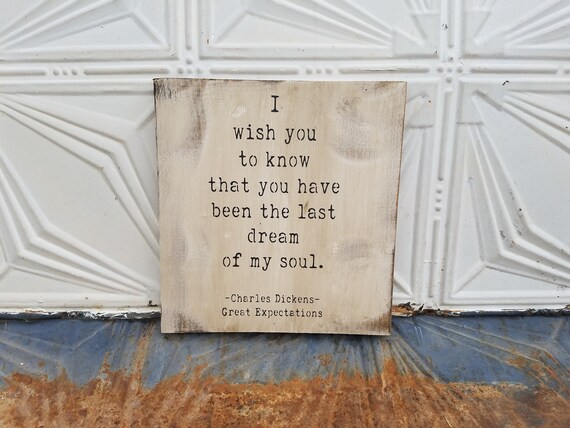 I
wish you
to know
that you have
been the last
dream
of my soul.
-Charles Dickens-
Great Expectations